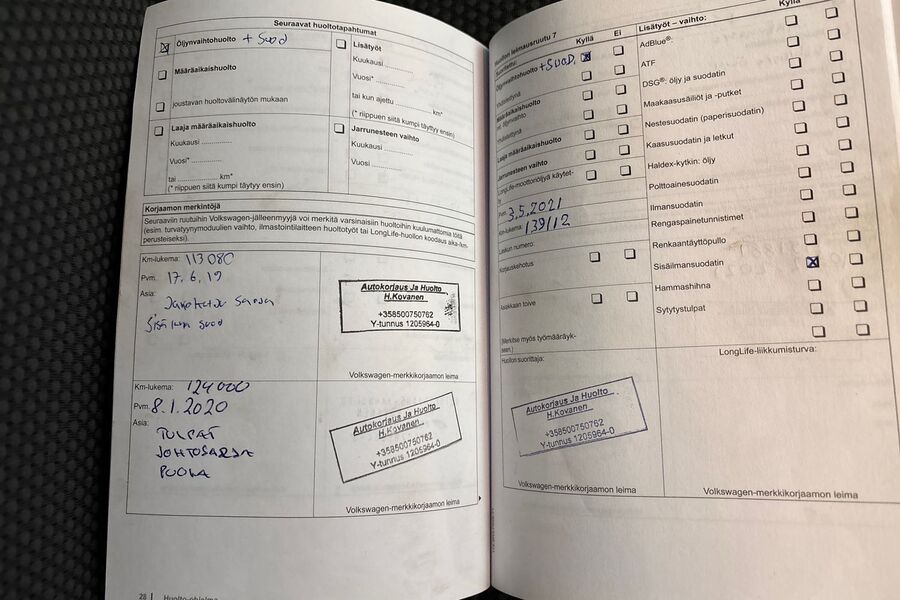 Seuraavat huoltotapahtumat
Öljynvaihtohuolto + Suod
Määräaikaishuolto
joustavan huoltovälinäytön mukaan
Laaja määräaikaishuolto
Kuukausi ..............
Vuosi* ..............
tai .............. km*
(* riippuen siitä kumpi täyttyy ensin)
Lisätyöt
Kuukausi ..............
Vuosi* ..............
tai kun ajettu .............. km*
(* riippuen siitä kumpi täyttyy ensin)
Jarrunesteen vaihto
Kuukausi ..............
Vuosi ..............
Korjaamon merkintöjä
Seuraaviin ruutuihin Volkswagen-jälleenmyyjä voi merkitä varsinaisiin huoltoihin kuulumattomia töitä
(esim. turvatyynymoduulien vaihto, ilmastointilaitteen huoltotyöt tai LongLife-huollon koodaus aika-/km-
perusteiseksi).
Km-lukema: 113 080
Pvm. 17.6.19
Asia:
Sisäilman suod
Autokorjaus Ja Huolto
H.Kovanen
+358500750762
Y-tunnus 1205964-0
Volkswagen-merkkikorjaamon leima
Km-lukema: 124 000
Pvm. 8.1.2020
Asia:
TULPAT
JOHTOSARJA
PUOLA
Autokorjaus Ja Huolto
H.Kovanen
+358500750762
Y-tunnus 1205964-0
Volkswagen-merkkikorjaamon leima
28 | Huolto-ohjelma
Huollon leimausruutu 7
Suoritettu: Kyllä Ei
Öljynvaihtohuolto + SUOD.
Yhdistettynä
Määräaikaishuolto
Yhdistettynä
Laaja määräaikaishuolto
Jarrunesteen vaihto
LongLife-moottoriöljyä käytet-
ty
Pvm. 3.5.2021
Km-lukema: 139112
Laskun numero:
Korjauskehotus
Asiakkaan toive
(Merkitse myös työmääräyk-
seen.)
Huollon suorittaja:
Autokorjaus Ja Huolto
H.Kovanen
+358500750762
Y-tunnus 1205964-0
Volkswagen-merkkikorjaamon leima
Lisätyöt – vaihto: Kyllä
AdBlue®:
ATF
DSG®: öljy ja suodatin
Maakaasusäiliöt ja -putket
Nestesuodatin (paperisuodatin)
Kaasusuodatin ja letkut
Haldex-kytkin: öljy
Polttoainesuodatin
Ilmansuodatin
Rengaspainetunnistimet
Renkaantäyttöpullo
Sisäilmansuodatin
Hammashihna
Sytytystulpat
LongLife-liikkumisturva:
Volkswagen-merkkikorjaamon leima